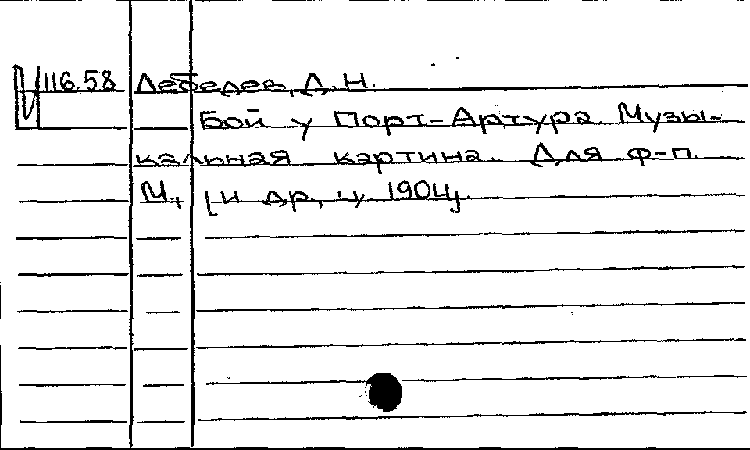 116.58 Лебедев, Д. Н.
Бой у Порт-Артура. Музы-
кальная картина. Для ф-п.
М., [и др., ц. 1904].